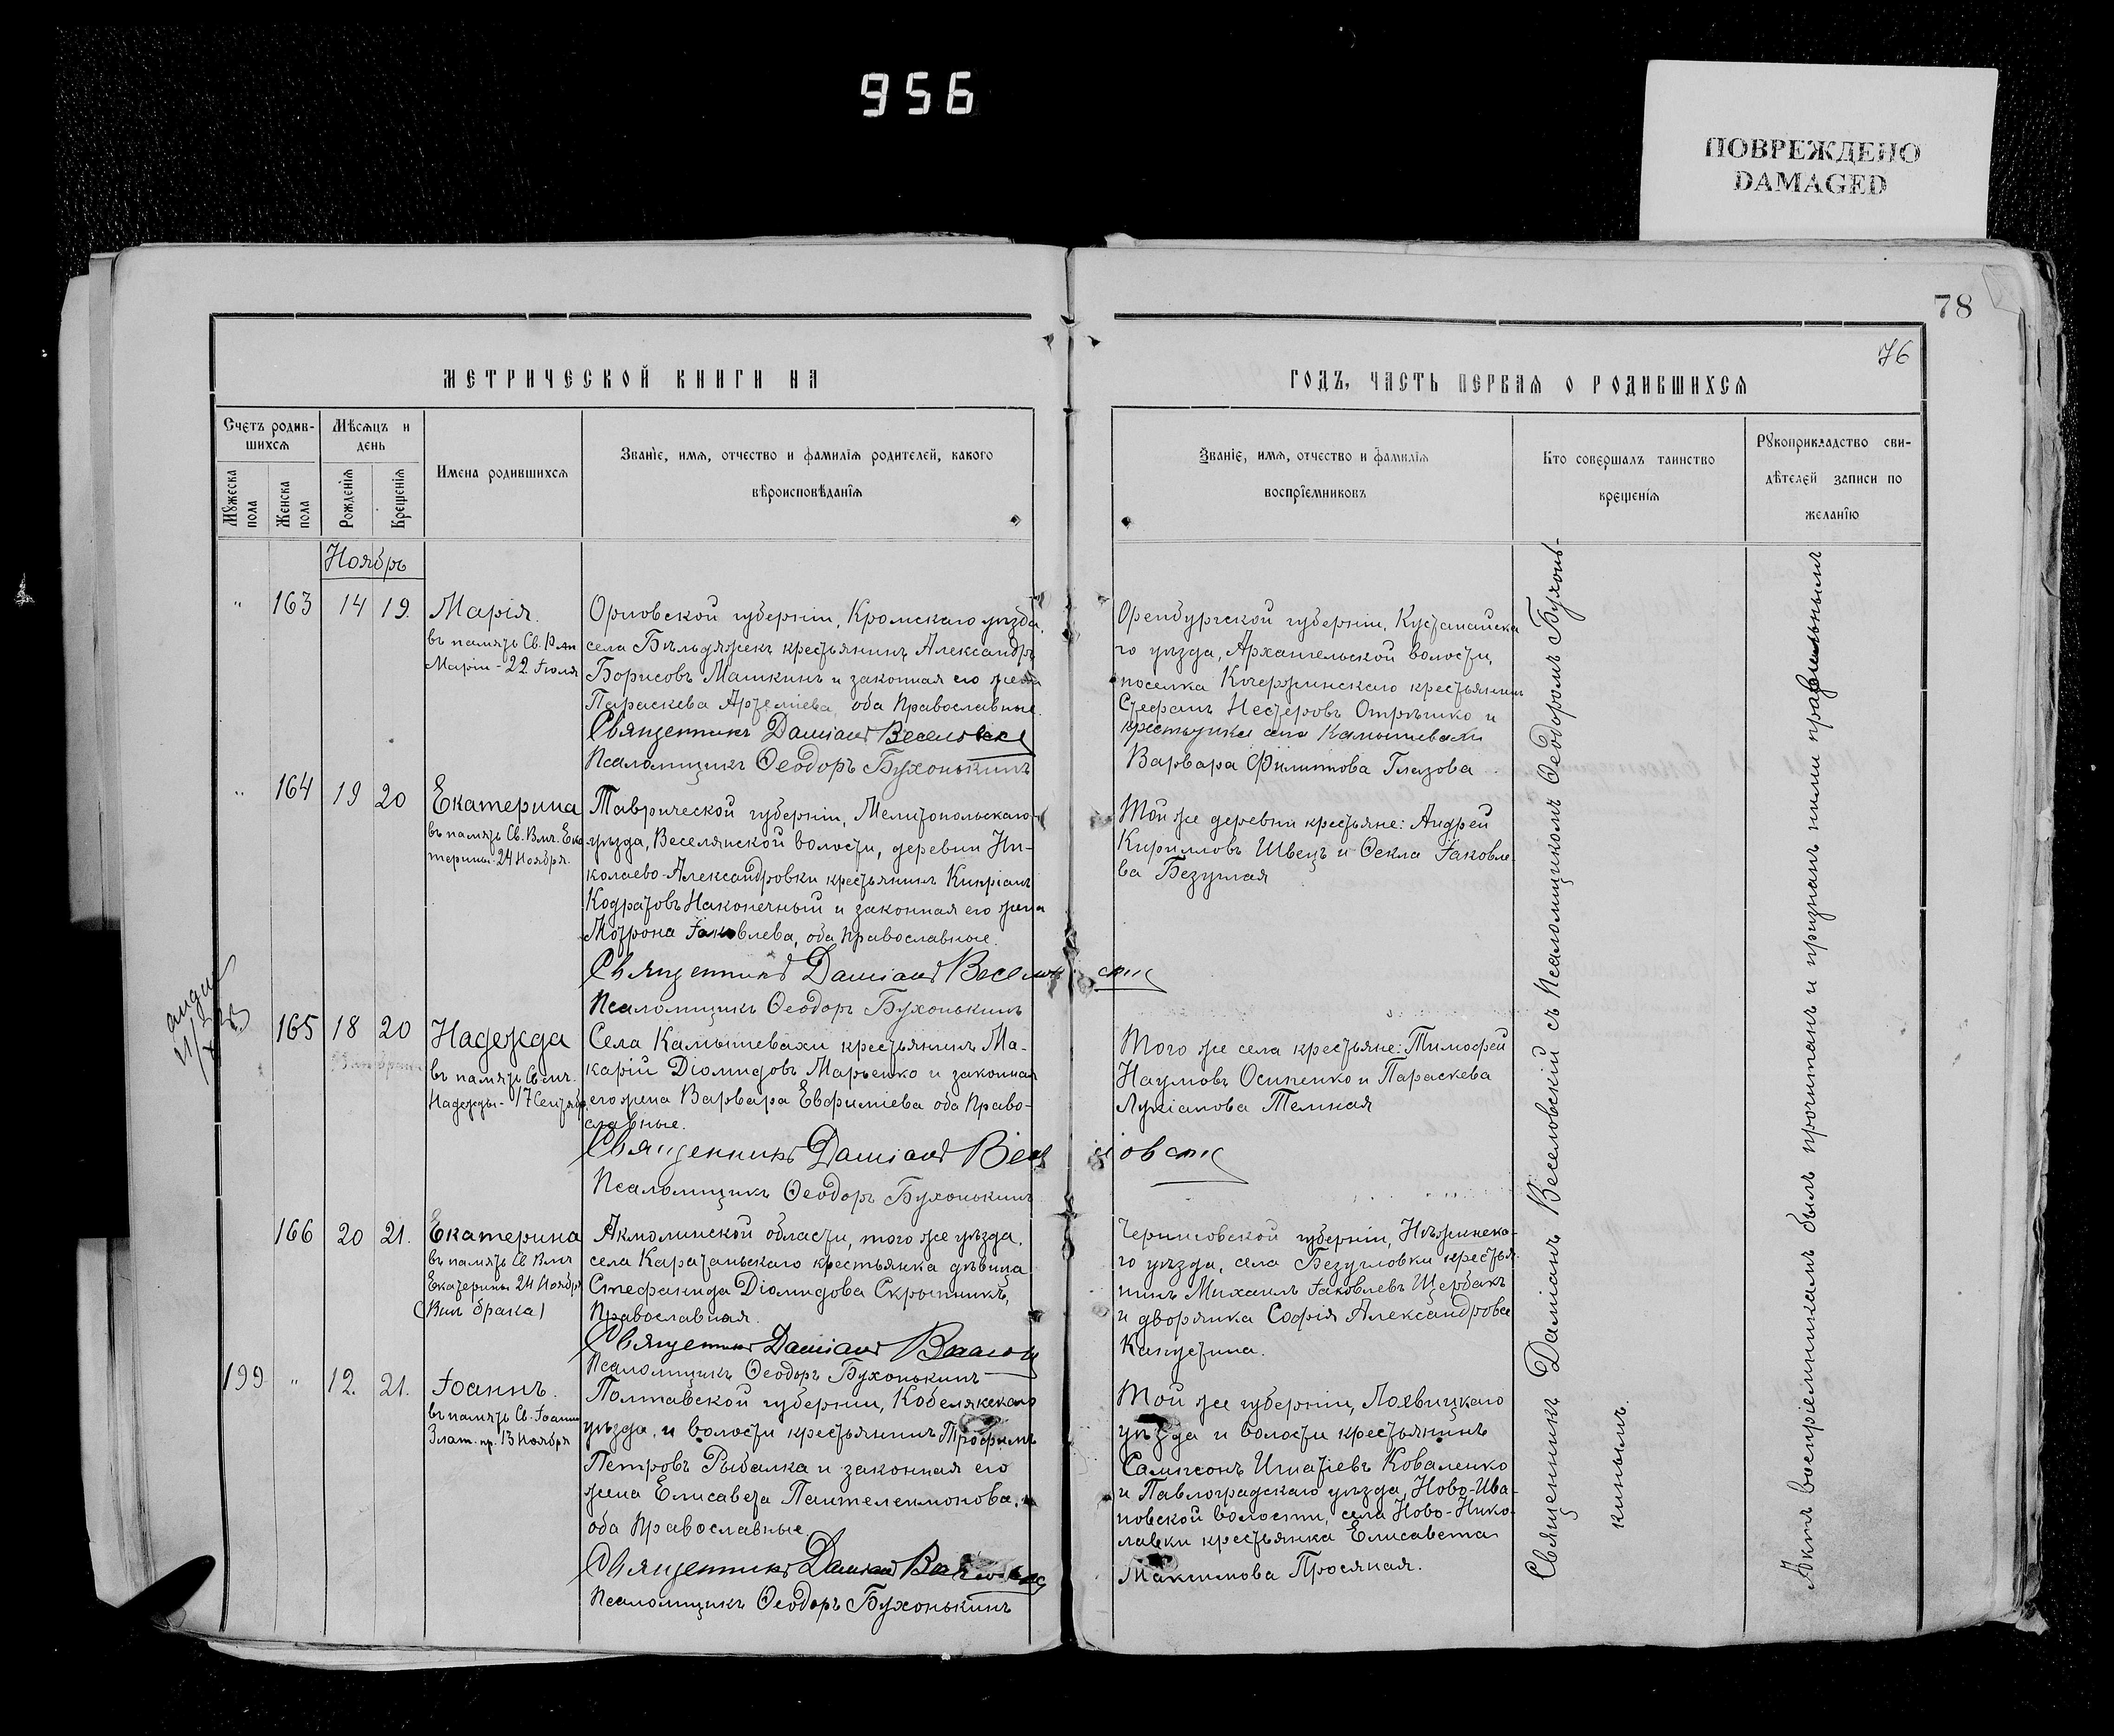 956
ПОВРЕЖДЕНО
DAMAGED
78
76
МЕТРИЧЕСКОЙ КНИГИ НА
ГОДЪ, ЧАСТЬ ПЕРВАЯ О РОДИВШИХСЯ
Счетъ родив-
шихся
Мѣсяцъ и
день
Мужеска
пола
Женска
пола
Рожденія
Крещенія
Имена родившихся
Званіе, имя, отчество и фамилія родителей, какого
вѣроисповѣданія
Званіе, имя, отчество и фамилія
воспріемниковъ
Кто совершалъ таинство
крещенія
Рукоприкладство сви-
дѣтелей записи по
желанію
Ноябрь
" 163 14 19. Марія.
въ память Св. Рап
Маріи - 22 Іюля
Орловской губерніи, Кромскаго уѣзда,
села Бѣльдяжекъ крестьянинъ Александръ
Борисовъ Машкинъ и законная его жена
Параскева Артеміева, оба Православные.
Священникъ Даміанъ Веселовскій
Псаломщикъ Ѳеодоръ Бухонькинъ
Оренбургской губерніи, Кустанайска
го уѣзда, Архангельской волости,
поселка крестьянинъ
Стефанъ Нестеровъ Отрѣшко и
крестьянка села Камышевахи
Варвара Филиппова Глазова
" 164 19 20 Екатерина
въ память Св. Влм. Ека
терины 24 Ноября.
Таврической губерніи, Мелитопольскаго
уѣзда, Веселянской волости, деревни Ни-
колаево-Александровки крестьянинъ Кипріанъ
Кодратовъ Наконечный и законная его жена
Мотрона Іаковлева, оба Православные.
Священникъ Даміанъ Веселовскій
Псаломщикъ Ѳеодоръ Бухонькинъ
Той же деревни крестьяне: Андрей
Кирилловъ Швецъ и Ѳекла Іаковле-
ва Безуглая
165 18 20 Надежда
въ память Св. мч.
Надежды - 17 Сентябр.
Села Камышевахи крестьянинъ Ма-
карій Діомидовъ Марьенко и законная
его жена Варвара Евфиміева оба Право-
славные.
Священникъ Даміанъ Веселовскій
Псаломщикъ Ѳеодоръ Бухонькинъ
Того же села крестьяне: Тимофей
Наумовъ Осипенко и Параскева
Лукіанова Темная
166 20 21. Екатерина
въ память Св Влм
Екатерины 24 Ноября
(Внѣ брака)
Акмолинской области, того же уѣзда,
села крестьянка дѣвица
Стефанида Діомидова Скрыпникъ,
Православная.
Священникъ Даміанъ Веселовскій
Псаломщикъ Ѳеодоръ Бухонькинъ
Черниговской губерніи, Нѣжинска-
го уѣзда, села Безугловки крестья
нинъ Михаилъ Іаковлевъ Щербакъ
и дворянка Софія Александрова
Капустина.
199 " 12. 21. Іоаннъ.
въ память Св. Іоанна
Злат. пр. 13 Ноября
Полтавской губерніи, Кобелякскаго
уѣзда, и волости крестьянинъ Трофимъ
Петровъ Рыбалка и законная его
жена Елисавета Пантелеимонова,
оба Православные.
Священникъ Даміанъ Веселовскій
Псаломщикъ Ѳеодоръ Бухонькинъ
Той же губерніи, Лохвицкаго
уѣзда и волости крестьянинъ
Сампсонъ Игнатіевъ Коваленко
и Павлоградскаго уѣзда, Ново-Ива-
новской волости, села Ново-Нико-
лавки крестьянка Елисавета
Максимова Просяная.
Священникъ Даміанъ Веселовскій съ Псаломщикомъ Ѳеодоромъ Бухонь-
кинымъ.
Актъ воспріемникамъ былъ прочитанъ и признанъ ними правильнымъ